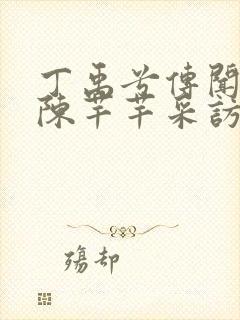 丁禹兮傳聞
陳芊芊采訪
殤却